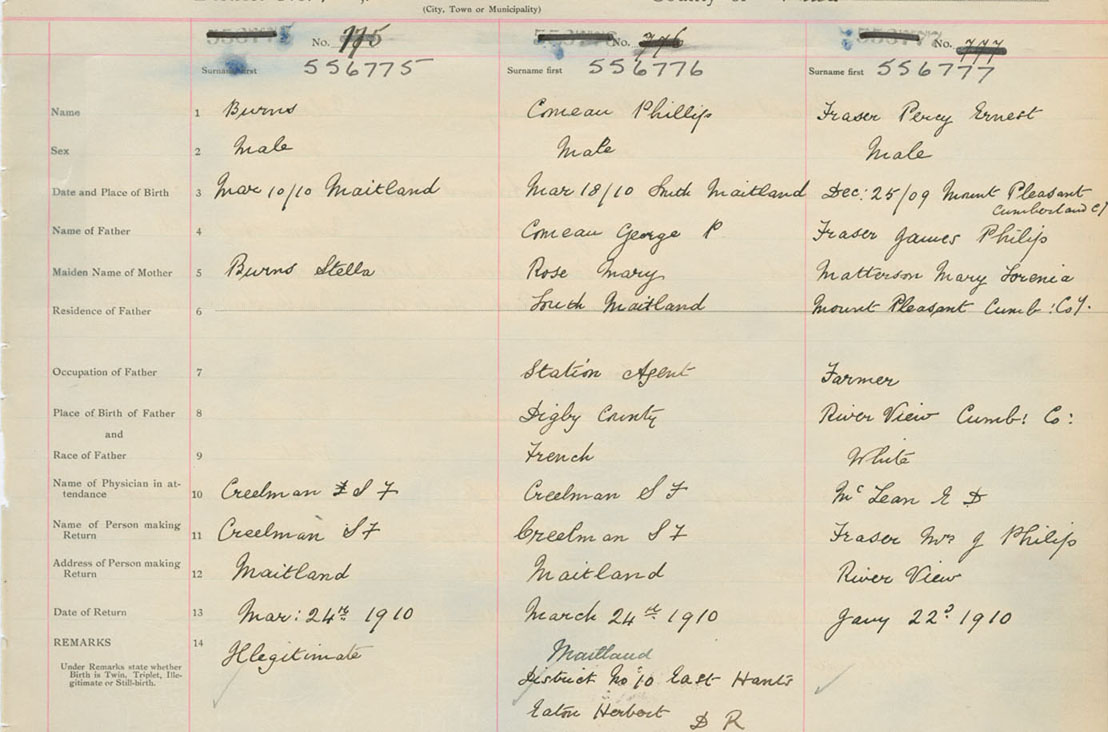 (City, Town or Municipality)
No. 775 No. 776 No. 777
Surname first 556775 Surname first 556776 Surname first 556777
Name 1 Burns Comeau Phillip Fraser Percy Ernest
Sex 2 Male Male Male
Date and Place of Birth 3 Mar 10/10 Maitland Mar 18/10 South Maitland Dec: 25/09 Mount Pleasant
Cumberland Cy
Name of Father 4 Comeau George P Fraser James Philip
Maiden Name of Mother 5 Burns Stella Rose Mary Matterson Mary Lorenia
Residence of Father 6 South Maitland Mount Pleasant Cumb: Coy.
Occupation of Father 7 Station Agent Farmer
Place of Birth of Father 8 Digby County River View Cumb: Co:
and
Race of Father 9 French White
Name of Physician in at-
tendance 10 Creelman S F Creelman S F Mc Lean E D
Name of Person making
Return 11 Creelman S F Creelman S F Fraser Mrs J Philip
Address of Person making
Return 12 Maitland Maitland River View
Date of Return 13 Mar: 24th 1910 March 24th 1910 Jany 22d 1910
REMARKS 14 Illegitimate Maitland
Under Remarks state whether
Birth is Twin, Triplet, Ille-
gitimate or Still-birth.
District No 10 East Hants
Eaton Herbert D R